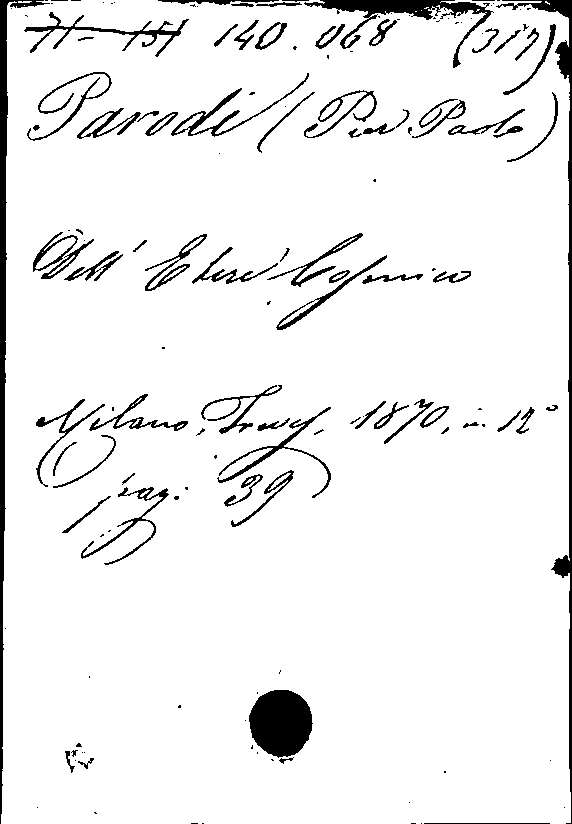 71 - 151 140.068 (317)
Parodi (Pier Paolo)
Dell' Etere Cosmico
Milano, Treves, 1870, in 12°
pag. 39